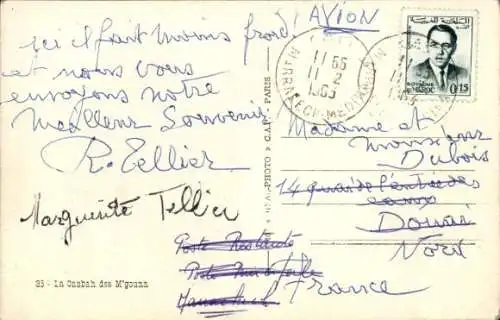 AVION
ici il fait moins froid
et nous vous
envoyons notre
Meilleur Souvenir
R. Tellier
Marguerite Tellier
23 - La Casbah des M'gouna
RÉAL-PHOTO C.A.P. - PARIS
MARRAKECH-MEDINA
11 2
1965
ROYAUME DU MAROC
0,15
Madame et
Monsieur
Dubois
14 quai de l'entrée des
eaux
Douai
Nord
France
Poste Restante
Marrakech